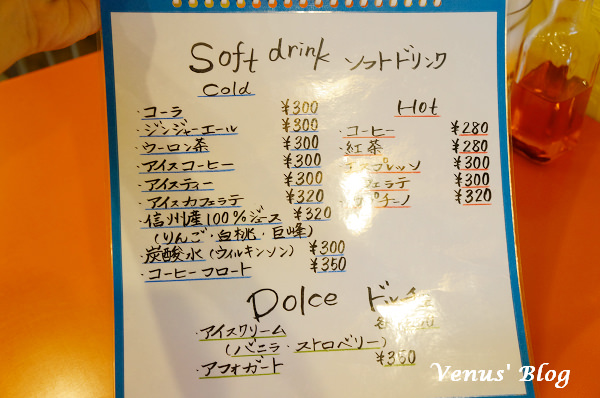 Soft drink ソフトドリンク
Cold
・コーラ ¥300
・ジンジャーエール ¥300
・ウーロン茶 ¥300
・アイスコーヒー ¥300
・アイスティー ¥300
・アイスカフェラテ ¥320
・信州産100%ジュース ¥320
(りんご・白桃・巨峰)
・炭酸水(ウィルキンソン) ¥300
・コーヒーフロート ¥350
Hot
・コーヒー ¥280
・紅茶 ¥280
スプレッソ ¥300
フェラテ ¥300
プチーノ ¥320
Dolce
・アイスクリーム
(バニラ・ストロベリー)
・アフォガート ¥350
Venus' Blog